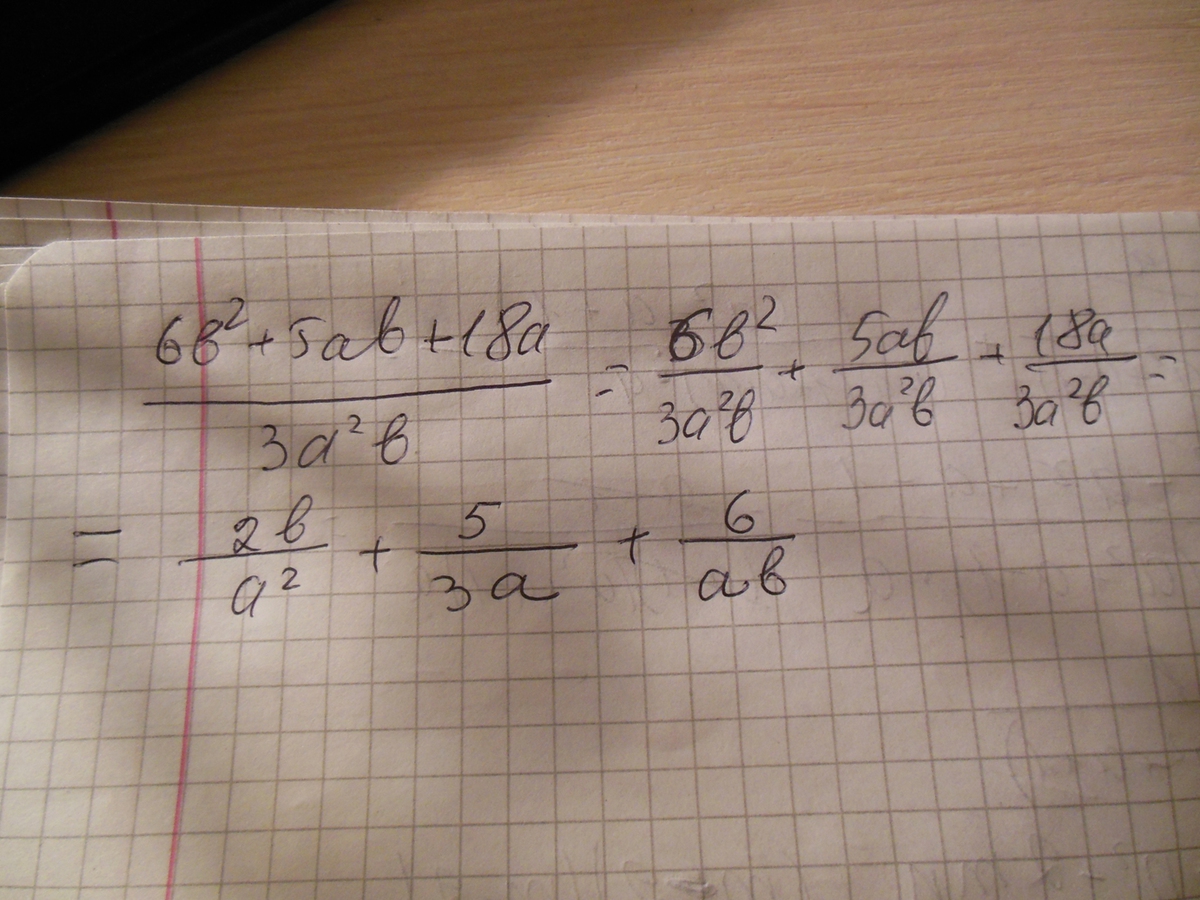 (6b² + 5ab + 18a)/(3a²b) = 6b²/(3a²b) + 5ab/(3a²b) + 18a/(3a²b) =
= 2b/a² + 5/(3a) + 6/(ab)